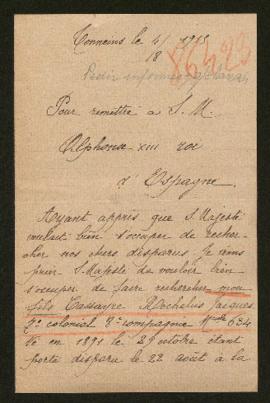 Tonneins le 4/8 1915
86423
Pedir informes
Pour remettre à S. M.
Alphonse XIII roi
d'Espagne.
Ayant appris que S. Majesté
voulait bien s'occuper de recher-
cher nos chers disparus je viens
prier S. Majesté de vouloir bien
s'occuper de faire rechercher mon
fils Cassayre Jacques
7e colonial 8e compagnie Mle 634
né en 1891 le 29 octobre étant
porté disparu le 22 août à la